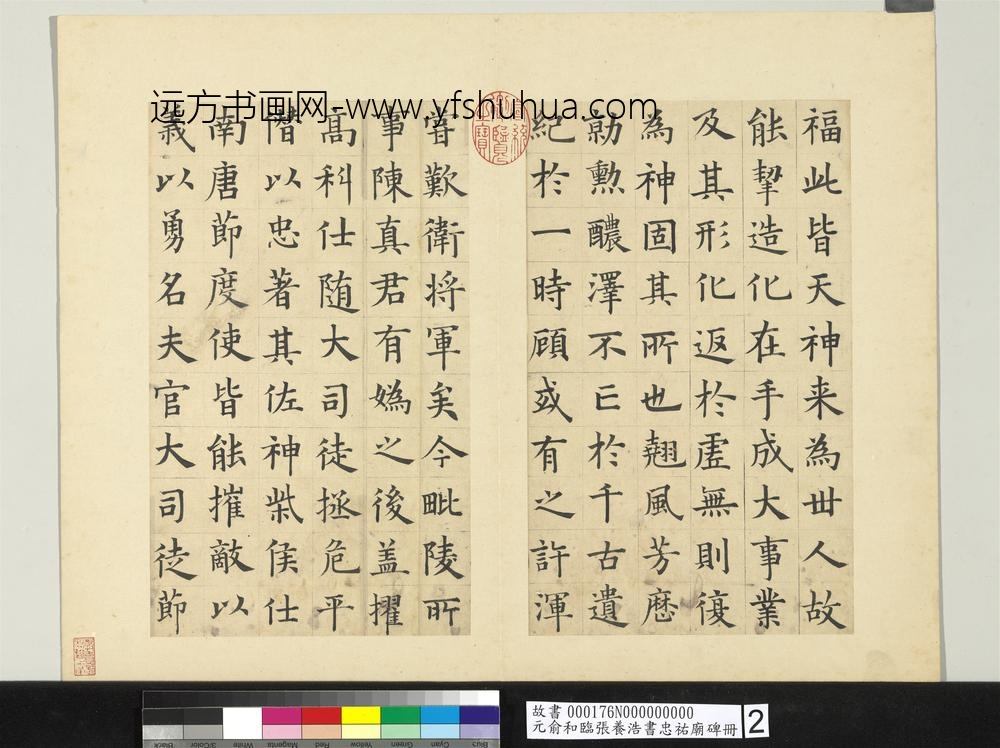 远方书画网-www.yfshuhua.com
福此皆天神来為丗人故
能挈造化在手成大事業
及其形化返於虛無則復
為神固其所也翹風芳
勲醲澤不亡於千古遺
紀於一時顧或有之許渾
嘗歎衛将軍矣今毗陵所
事陳真君有媯之後盖擢
高科仕随大司徒拯危平
僭以忠著其佐神柴侯仕
南唐節度使皆能摧敵以
義以勇名夫官大司徒節
故書 000176N000000000
元俞和臨張養浩書忠祐廟碑冊
2
Black
3/Color
White
Magenta
Red
Yellow
Green
Cyan
Blue